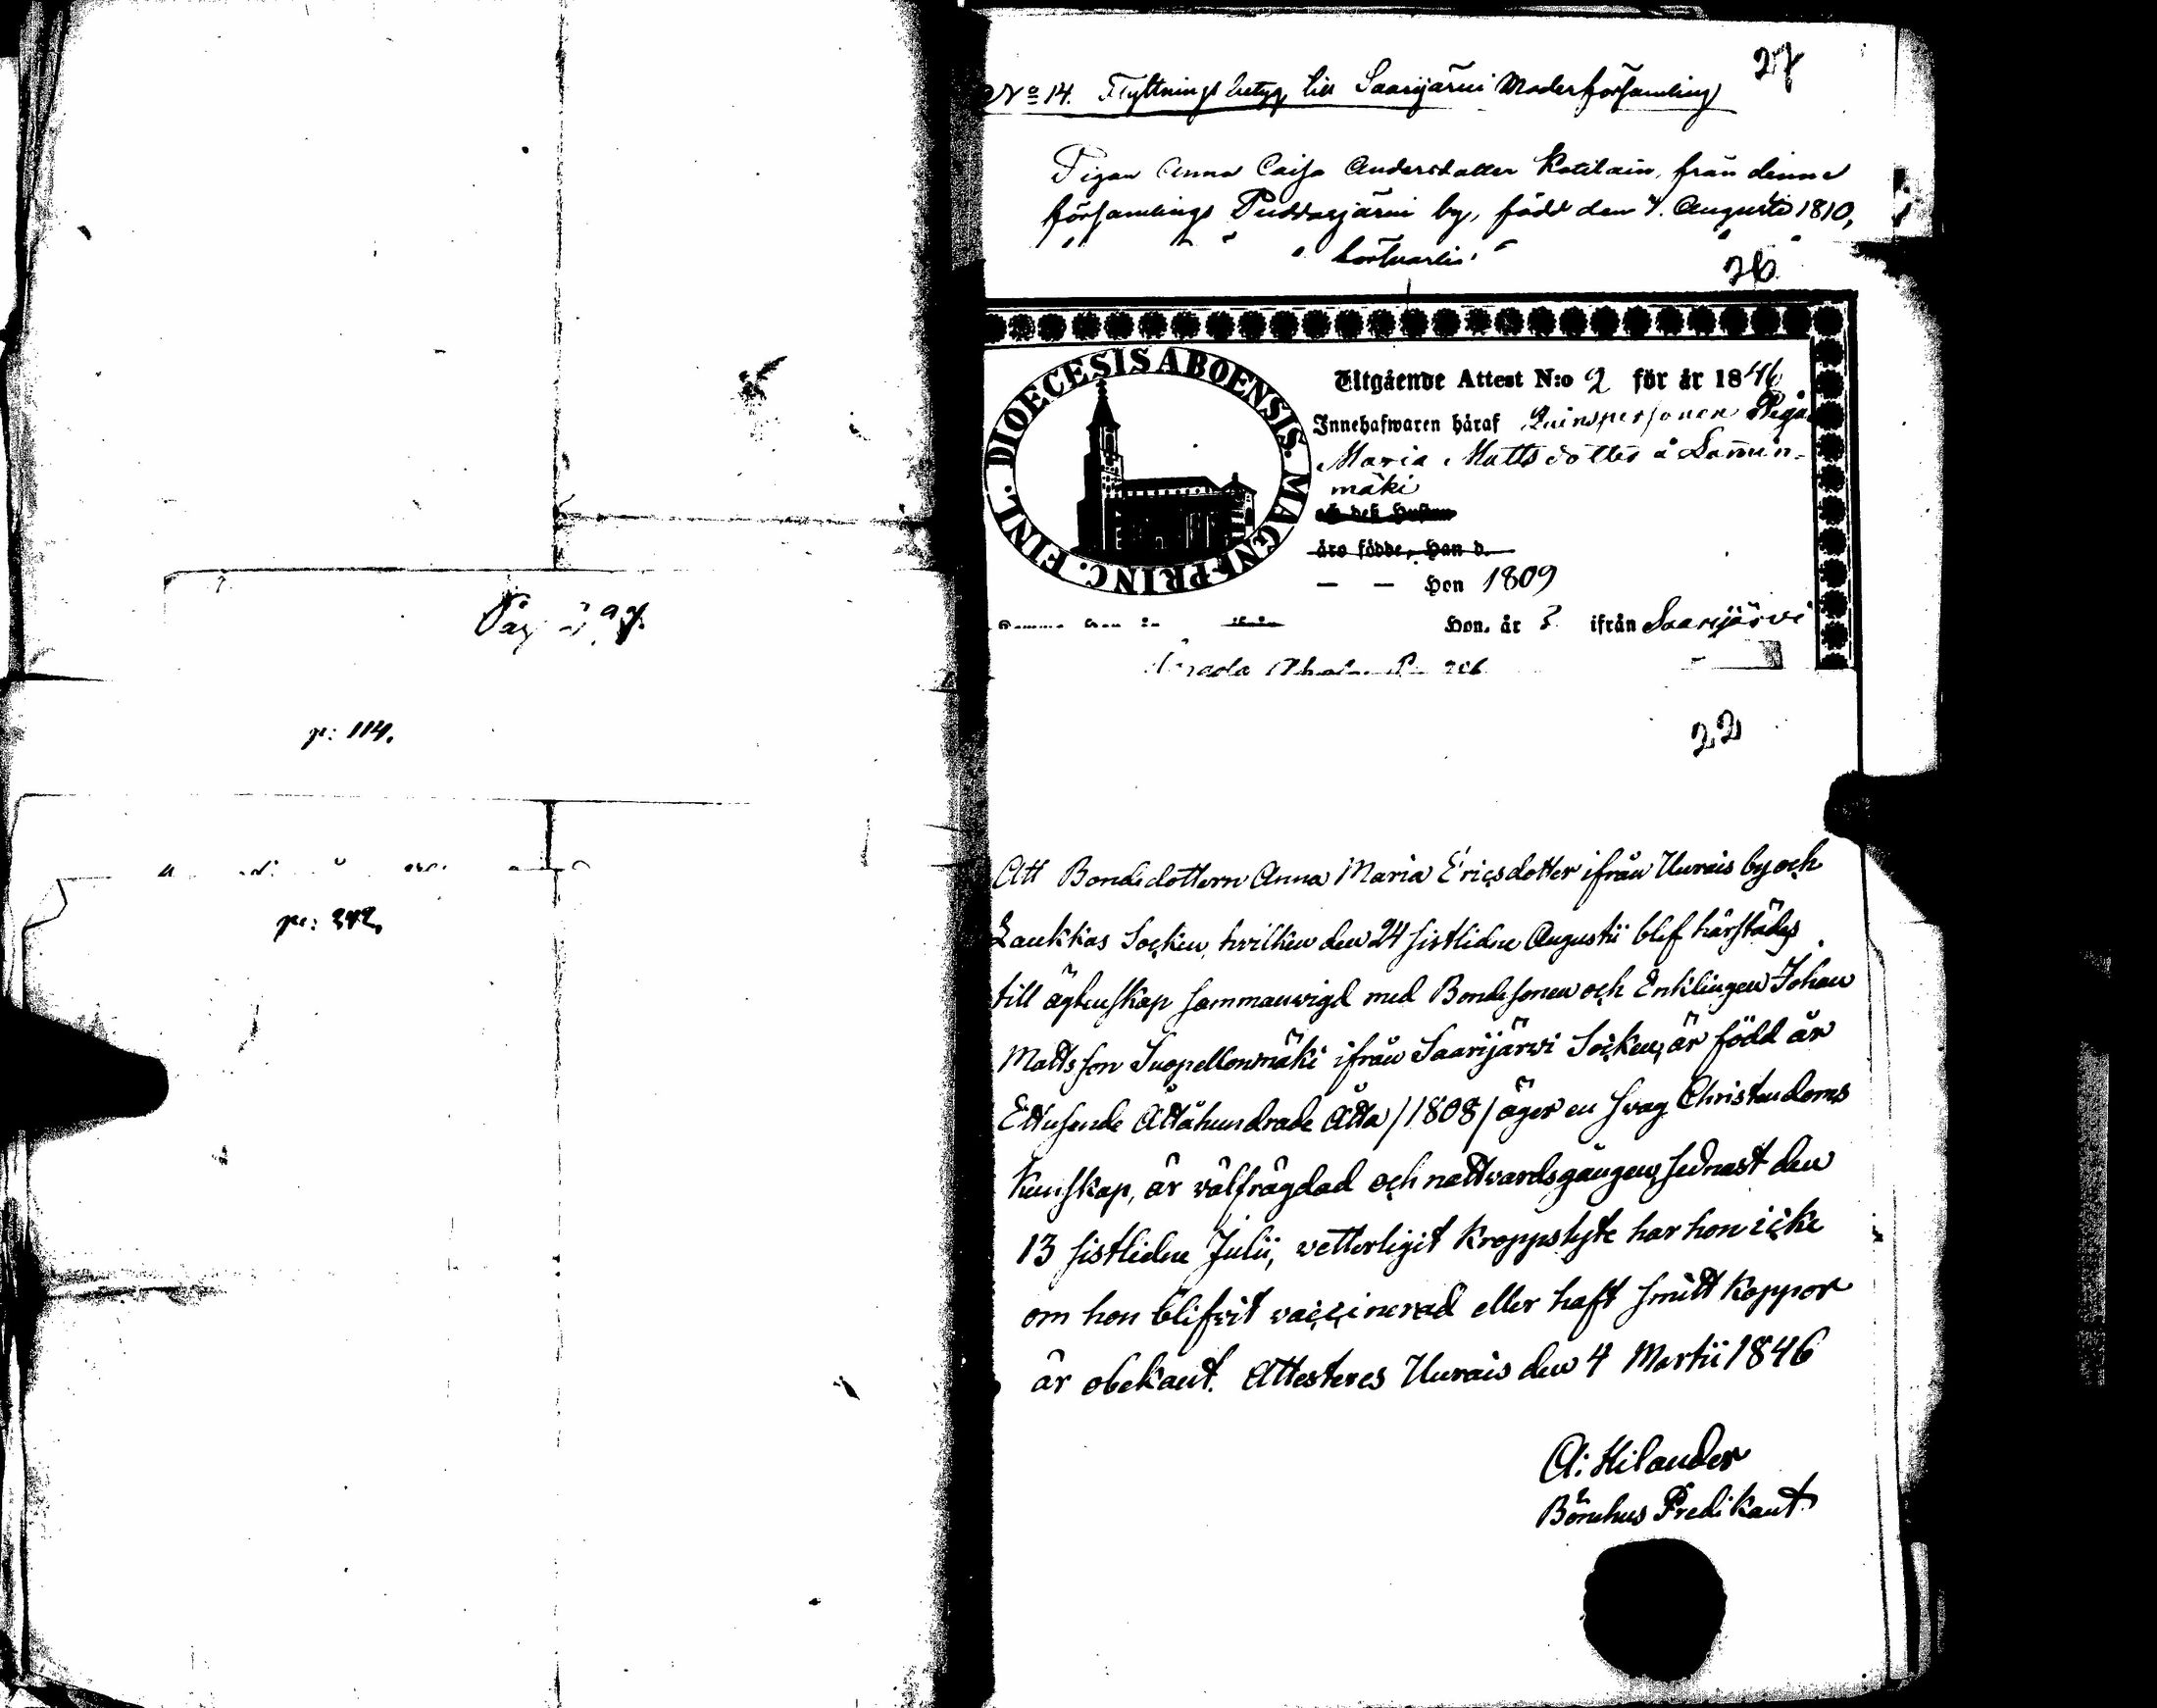 Pag 297.
p: 114.
p: 242.
27
No 14. Flyttnings betyg till Saarijärvi Moderförsamling
Pigan Anna Caisa Andersdotter Kotilain, från denna
församlings Pudasjärvi by, född den 7. Augusti 1810,
26
DIOECESIS ABOENSIS. MAGNI PRINC. FINL.
Utgående Attest N:o 2 för år 1846
Innehafwaren häraf Quinspersonen Pigan
Maria Mattsdotter å Lamin-
mäki
och dess Hustru
äro födde, Han d.
— — Hon 1809
Hon. år ifrån Saarijärvi
22
Att Bondedottern Anna Maria Ericsdotter ifrån Uurais by och
Laukkas Socken, hvilken den 24 sistlidne Augustii blef härstädes
till ägtenskap sammanvigd med Bondesonen och Enklingen Johan
Mattsson Suopellonmäki ifrån Saarijärvi Socken, är född år
Ettusende Åttahundrade Åtta /1808/ äger en svag Christendoms
kunskap, är välfrägdad och nattvardsgången sednast den
13 sistlidne Julii, vetterligit kroppslyte har hon icke
om hon blifvit vaccinerad eller haft smitt koppor
är obekant. Attesteres Uurais den 4 Martii 1846
A: Hilander
Bönehus Predikant